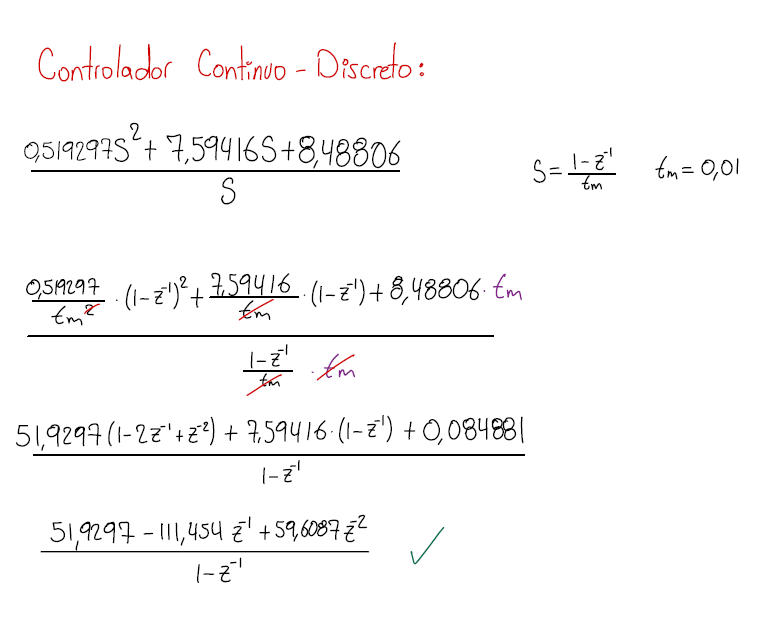 Controlador Continuo - Discreto:
0,519297S² + 7,59416S + 8,48806
S
S = 1 - z⁻¹ / tm    tm = 0,01
0,519297 / tm² · (1 - z⁻¹)² + 7,59416 / tm · (1 - z⁻¹) + 8,48806 · tm
1 - z⁻¹ / tm · tm
51,9297 (1 - 2z⁻¹ + z⁻²) + 7,59416 · (1 - z⁻¹) + 0,084881
1 - z⁻¹
51,9297 - 111,454 z⁻¹ + 59,6087 z⁻²
1 - z⁻¹